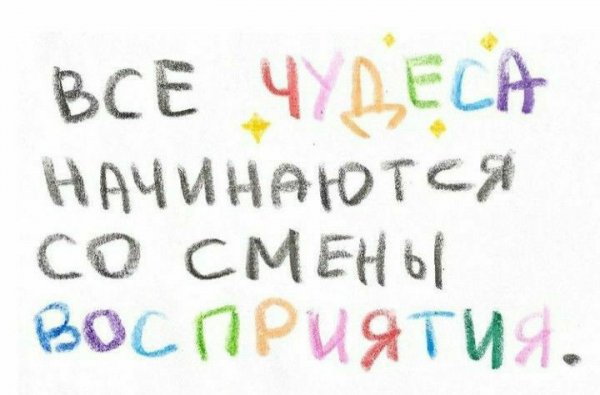 ВСЕ ЧУДЕСА
НАЧИНАЮТСЯ
СО СМЕНЫ
ВОСПРИЯТИЯ.